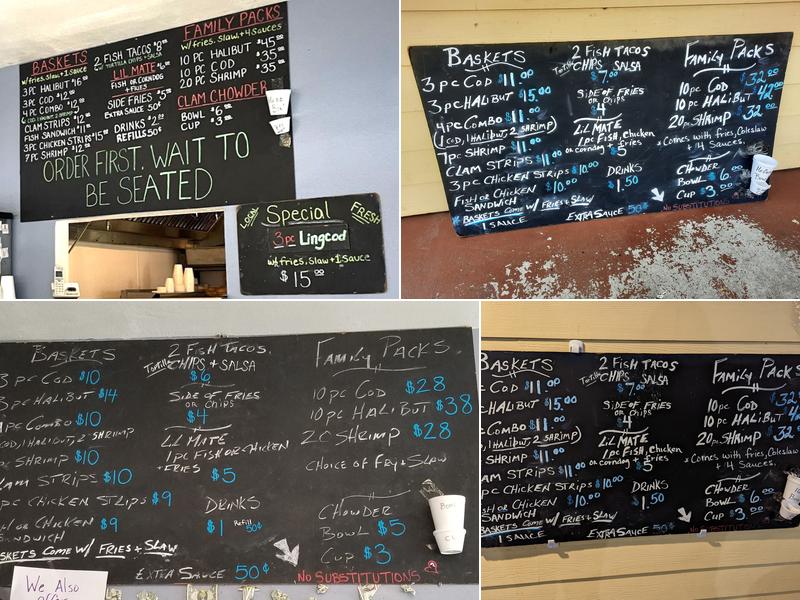 FAMILY PACKS
w/fries, slaw, +4 Sauces
10 PC HALIBUT $45.00
10 PC COD $35.00
20 PC SHRIMP $35.00
CLAM CHOWDER
BOWL $6.00
CUP $3.00
BASKETS
w/fries, slaw, +1 Sauce
3PC HALIBUT $16.00
3PC COD $12.00
4PC COMBO $12.00
CLAM STRIPS $12.00
FISH SANDWICH $11.00
3PC CHICKEN STRIPS $15.00
7PC SHRIMP $12.00
2 FISH TACOS $8.00
w/ TORTILLA CHIPS + SALSA
LIL MATE $6.00
FISH OR CORNDOG
+ FRIES
SIDE FRIES $5.00
EXTRA SAUCE 50¢
DRINKS $2.00
REFILLS 50¢
ORDER FIRST, WAIT TO
BE SEATED
LOCAL
Special
FRESH
3pc Lingcod
w/fries, slaw +1 sauce
$15.00
BASKETS
3pc COD $11.00
3pc HALIBUT $15.00
4pc COMBO $11.00
(1 COD, 1 HALIBUT, 2 SHRIMP)
7pc SHRIMP $11.00
CLAM STRIPS $11.00
3pc CHICKEN STRIPS $10.00
FISH OR CHICKEN
SANDWICH $10.00
*BASKETS COME W/ FRIES + SLAW
1 SAUCE
2 FISH TACOS
Tortilla CHIPS + SALSA
$7.00
SIDE OF FRIES
OR CHIPS
$4
LIL MATE
1pc FISH, chicken
or corndog + $5
DRINKS
$1.50
EXTRA SAUCE 50¢
FAMILY PACKS
10pc COD $32.00
10pc HALIBUT $42.00
20pc SHRIMP $32.00
* Comes with fries, Coleslaw
+ 14 Sauces.
CHOWDER
BOWL $6.00
CUP $3.00
NO SUBSTITUTIONS
BASKETS
3pc COD $10
3pc HALIBUT $14
4pc COMBO $10
COD, 1 HALIBUT, 2 SHRIMP
pc SHRIMP $10
LAM STRIPS $10
pc CHICKEN STRIPS $9
OR CHICKEN $9
ANDWICH
SKETS COME W/ FRIES + SLAW
2 FISH TACOS,
Tortilla CHIPS + SALSA
$6
SIDE OF FRIES
OR CHIPS
$4
LIL MATE
1pc FISH OR CHICKEN
+ FRIES $5
DRINKS
$1 Refill 50¢
EXTRA SAUCE 50¢
FAMILY PACKS
10pc COD $28
10pc HALIBUT $38
20 SHRIMP $28
CHOICE OF FRY + SLAW
CHOWDER
BOWL $5
CUP $3
NO SUBSTITUTIONS
We Also
BASKETS
COD $11.00
HALIBUT $15.00
COMBO $11.00
1 HALIBUT, 2 SHRIMP)
SHRIMP $11.00
AM STRIPS $11.00
pc CHICKEN STRIPS $10.00
SH OR CHICKEN
SANDWICH $10.00
BASKETS COME W/ FRIES + SLAW
1 SAUCE
2 FISH TACOS
Tortilla CHIPS + SALSA
$7.00
SIDE OF FRIES
OR CHIPS
$4
LIL MATE
1pc FISH, chicken
or corndog + $5
DRINKS
$1.50
EXTRA SAUCE 50¢
FAMILY PACKS
10pc COD $32
10pc HALIBUT $4
20pc SHRIMP $32
* Comes with fries, Coleslaw
+ 14 Sauces.
CHOWDER
BOWL $6.00
CUP $3.00
NO SUBSTITUTIONS